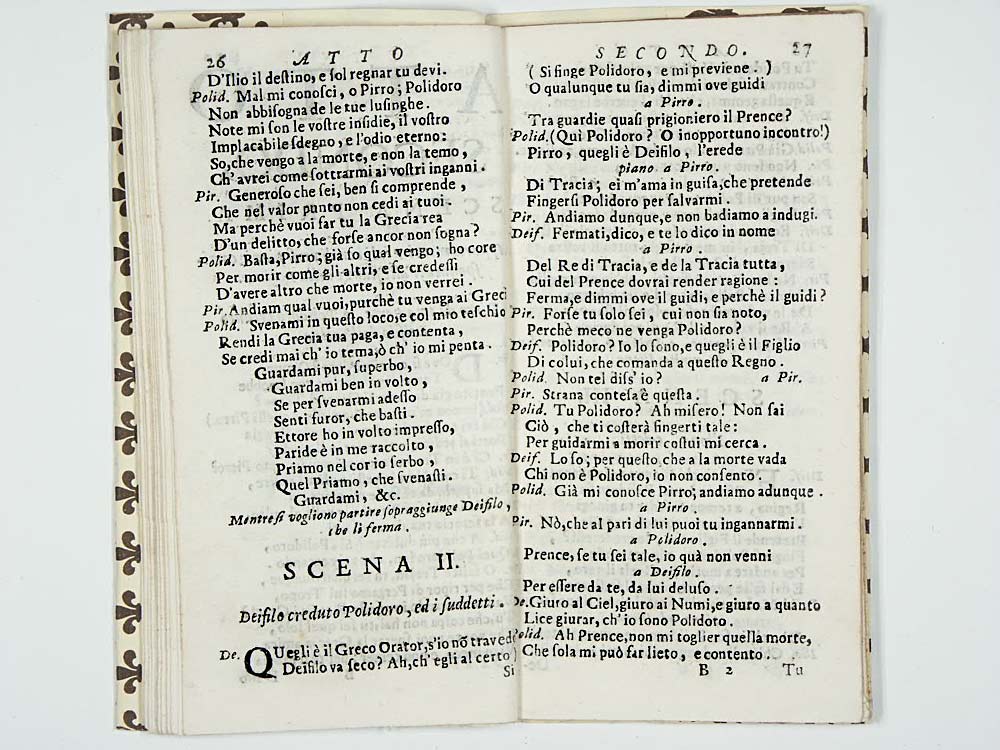 26 ATTO
D'Ilio il destino, e sol regnar tu devi.
Polid. Mal mi conosci, o Pirro; Polidoro
Non abbisogna de le tue lusinghe.
Note mi son le vostre insidie, il vostro
Implacabile sdegno, e l'odio eterno:
So, che vengo a la morte, e non la temo,
Ch' avrei come sottrarmi ai vostri inganni.
Pir. Generoso che sei, ben si comprende,
Che nel valor punto non cedi ai tuoi.
Ma perchè vuoi far tu la Grecia rea
D'un delitto, che forse ancor non sogna?
Polid. Basta, Pirro; già so qual vengo; ho core
Per morir come gli altri, e se credessi
D'avere altro che morte, io non verrei.
Pir. Andiam qual vuoi, purchè tu venga ai Greci
Polid. Svenami in questo loco, e col mio teschio
Rendi la Grecia tua paga, e contenta,
Se credi mai ch' io tema, ò ch' io mi penta.
Guardami pur, superbo,
Guardami ben in volto,
Se per svenarmi adesso
Senti furor, che basti.
Ettore ho in volto impresso,
Paride è in me raccolto,
Priamo nel cor io serbo,
Quel Priamo, che svenasti.
Guardami, &c.
Mentre si vogliono partire sopraggiunge Deifilo,
che li ferma.
SCENA II.
Deifilo creduto Polidoro, ed i suddetti.
De. QUegli è il Greco Orator, s'io nō travede
Deifilo va seco? Ah, ch' egli al certo)
Si
SECONDO. 27
( Si finge Polidoro, e mi previene. )
O qualunque tu sia, dimmi ove guidi
a Pirro.
Tra guardie quasi prigioniero il Prence?
Polid. (Quì Polidoro? O inopportuno incontro!)
Pirro, quegli è Deifilo, l'erede
piano a Pirro.
Di Tracia; ei m'ama in guisa, che pretende
Fingersi Polidoro per salvarmi.
Pir. Andiamo dunque, e non badiamo a indugi.
Deif. Fermati, dico, e te lo dico in nome
a Pirro.
Del Re di Tracia, e de la Tracia tutta,
Cui del Prence dovrai render ragione:
Ferma, e dimmi ove il guidi, e perchè il guidi?
Pir. Forse tu solo sei, cui non sia noto,
Perchè meco ne venga Polidoro?
Deif. Polidoro? Io lo sono, e quegli è il Figlio
Di colui, che comanda a questo Regno.
Polid. Non tel diss' io? a Pir.
Pir. Strana contesa è questa.
Polid. Tu Polidoro? Ah misero! Non sai
Ciò, che ti costerà fingerti tale:
Per guidarmi a morir costui mi cerca.
Deif. Lo so; per questo, che a la morte vada
Chi non è Polidoro, io non consento.
Polid. Già mi conosce Pirro; andiamo adunque.
a Pirro.
Pir. Nò, che al pari di lui puoi tu ingannarmi.
a Polidoro.
Prence, se tu sei tale, io quà non venni
a Deifilo.
Per essere da te, da lui deluso.
De. Giuro al Ciel, giuro ai Numi, e giuro a quanto
Lice giurar, ch' io sono Polidoto.
Polid. Ah Prence, non mi toglier quella morte,
Che sola mi può far lieto, e contento.
B 2 Tu